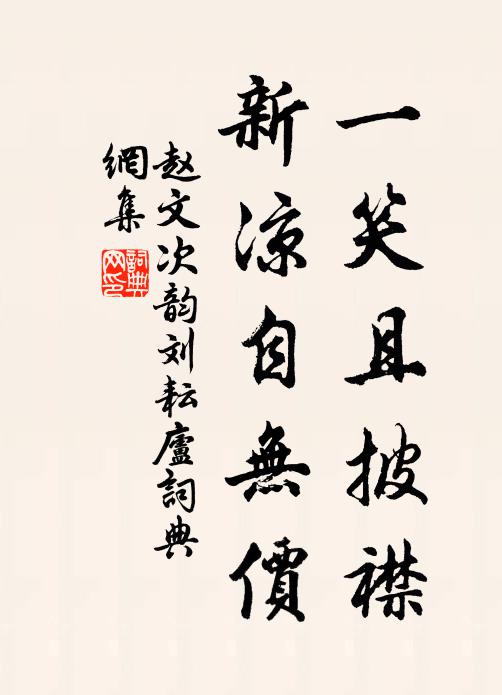 一笑且披襟
新凉自無價
赵文次韵刘耘廬詞典
網集
詞典
网印